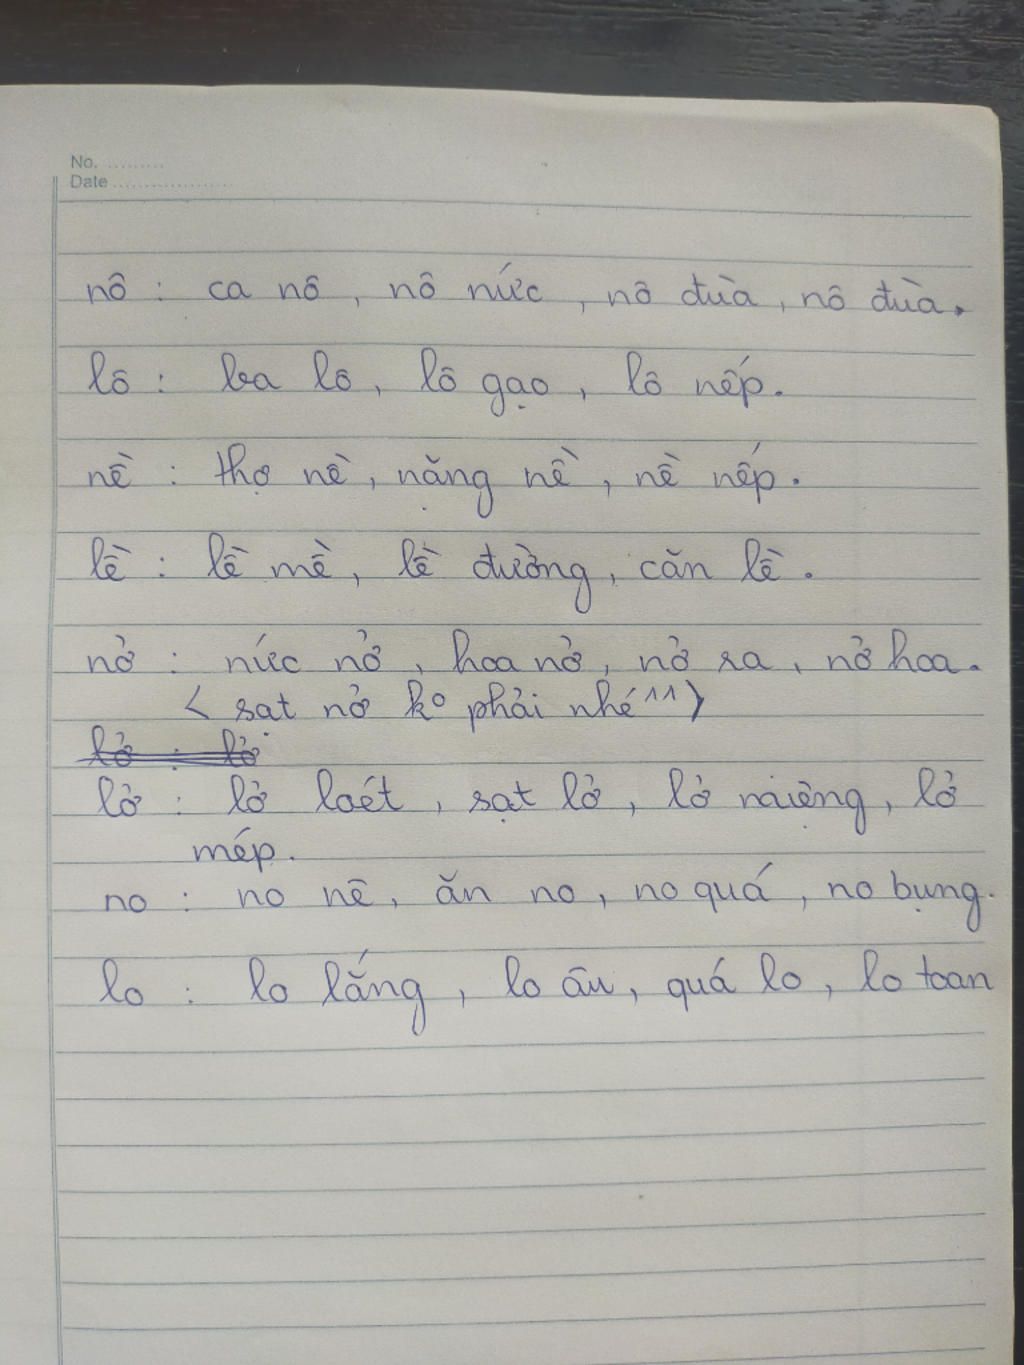 No. ..........
Date ....................
nô : ca nô , nô nức , nô đùa , nô đùa.
lô : ba lô , lô gạo , lô nếp.
nề : thợ nề , nặng nề , nề nếp.
lề : lề mề , lề đường , căn lề .
nở : nức nở , hoa nở , nở ra , nở hoa.
< sạt nở ko phải nhé ^^ >
lở : lở
lở : lở loét , sạt lở , lở miệng , lở
mép.
no : no nê , ăn no , no quá , no bụng.
lo : lo lắng , lo âu , quá lo , lo toan